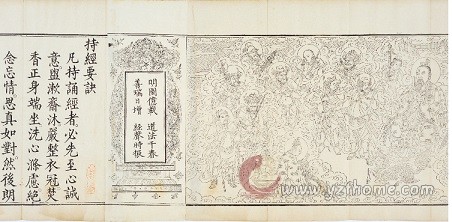 明圖億載　道法千春
善瑞日增　經聲時振
持經要訣
凡持誦經者必先至心誠
意盥漱齋沐嚴整衣冠焚
香正身端坐洗心滌慮絕
念忘情思真如對然後朗